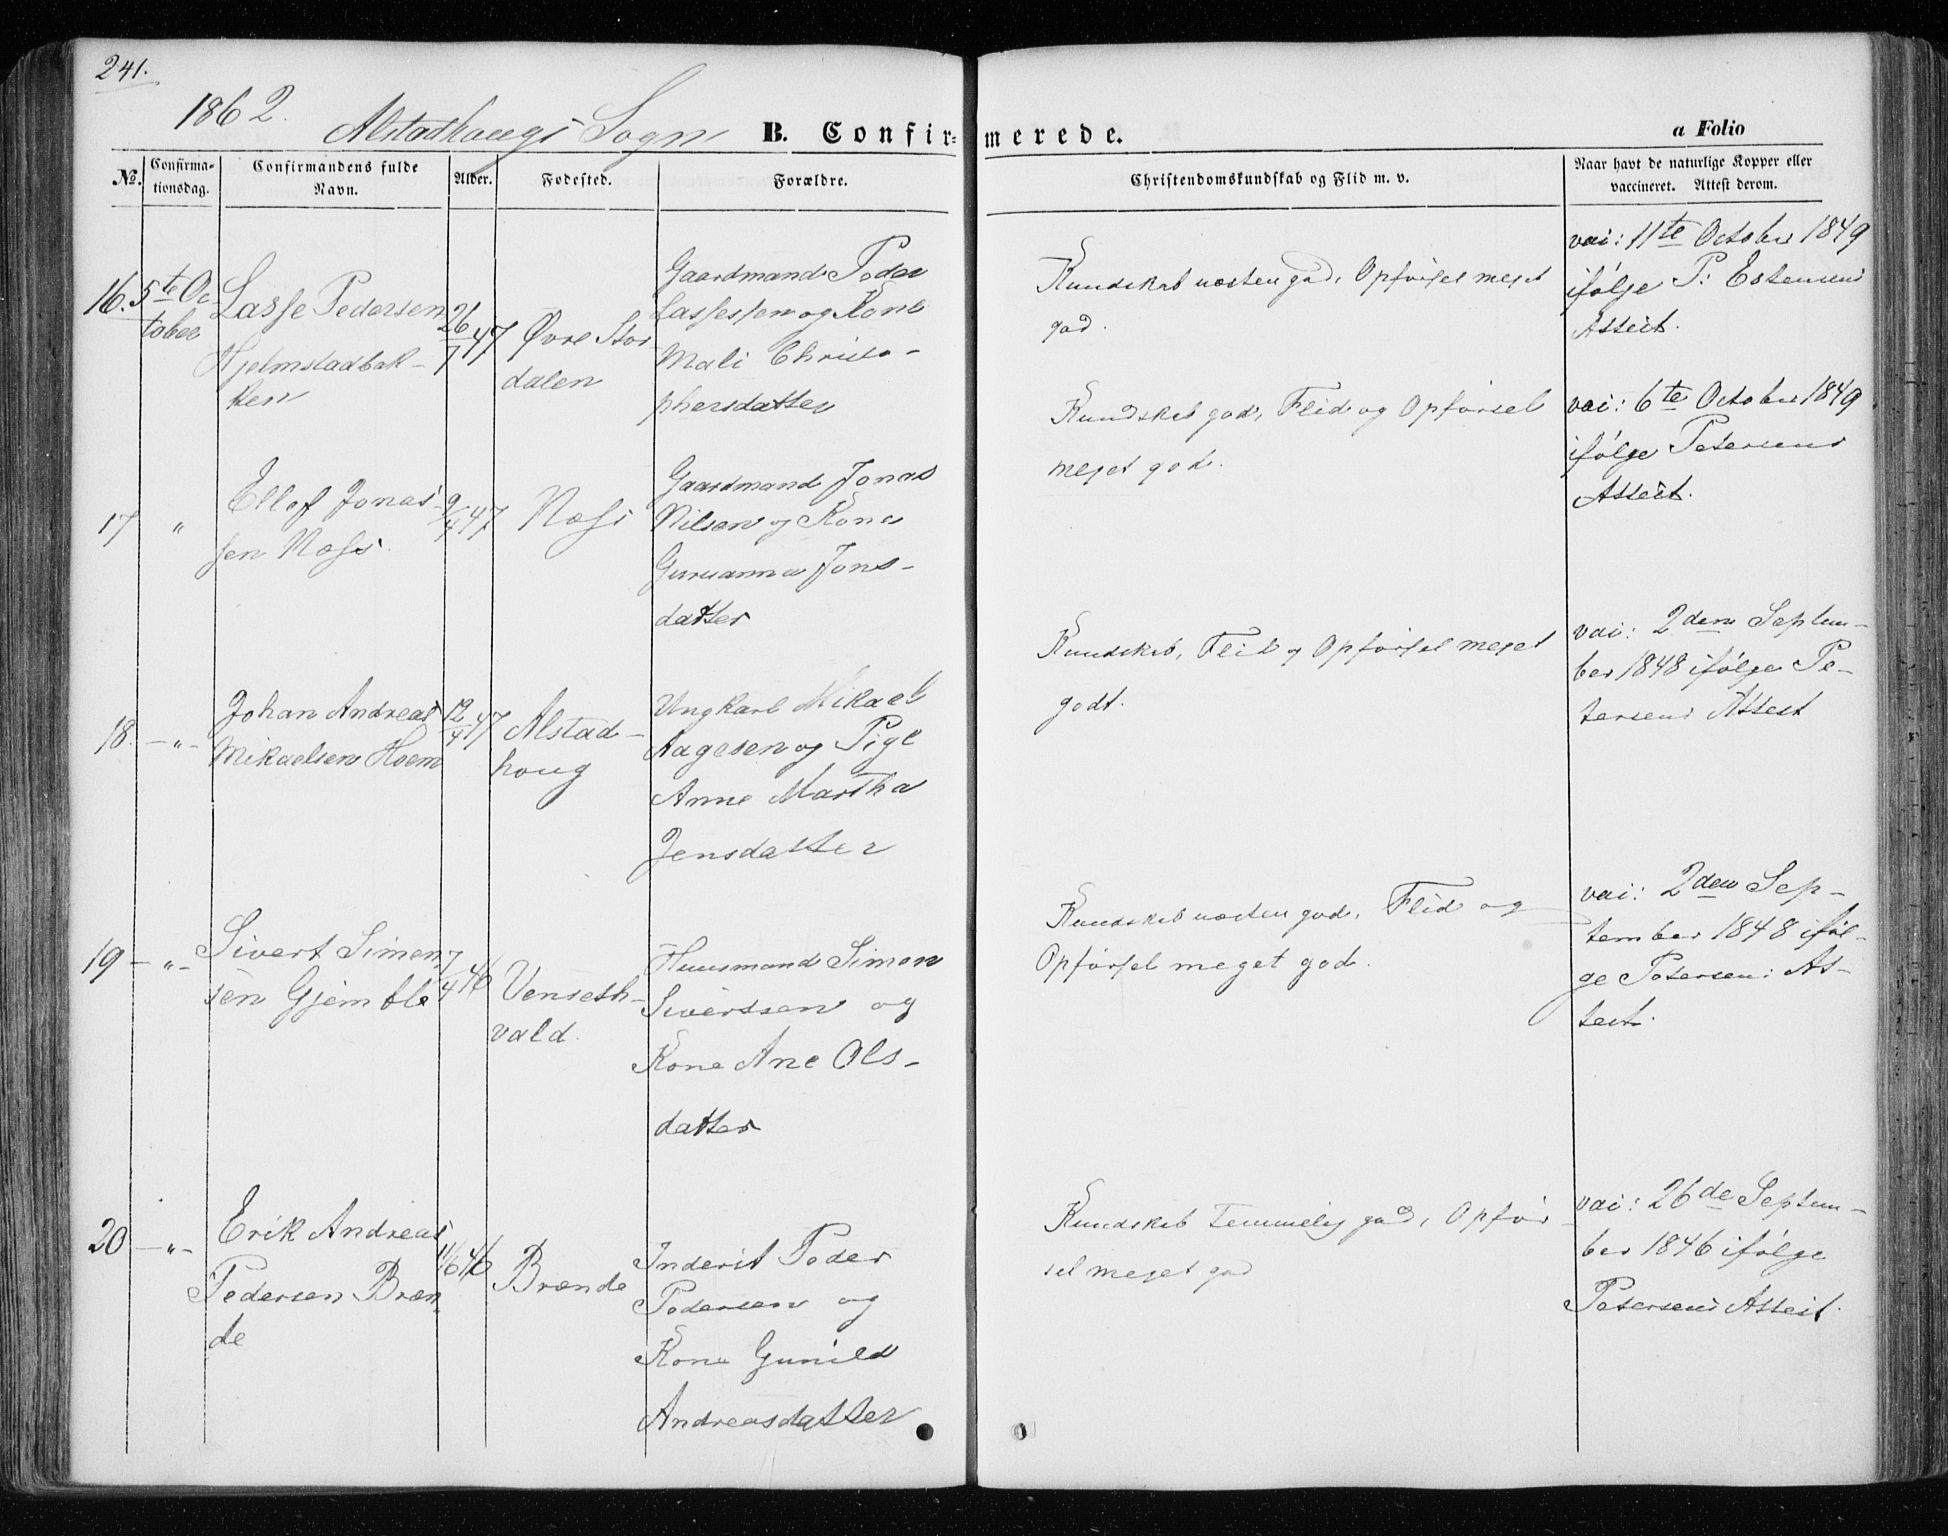 241.
1862.
Alstadhougs Sogn
B. Confirmerede.
a Folio
No.
Confirmationsdag.
Confirmandens fulde Navn.
Alder.
Fødested.
Forældre.
Christendomskundskab og Flid m. v.
Naar havt de naturlige Kopper eller
vaccineret. Attest derom.
16.
5te Oc-
tober
Lasse Pedersen
Hjelmstadbak-
ken
26/7 47
Øvre Stor-
dalen
Gaardmand Peder
Lassessen og Kone
Mali Christo-
phersdatter
Kundskab næsten god, Opførsel meget
god.
vai: 11te October 1849
ifølge P: Estensens
Attest.
17
"
Ellef Jonas-
sen Næss
9/4 47
Næss
Gaardmand Jonas
Nilsen og Kone
Guruanna Jons-
datter
Kundskab god, Flid og Opførsel
meget god.
vai: 6te October 1849
ifølge Petersens
Attest.
18.
-"-
Johan Andreas
Mikaelsen Hoem
12/4 47
Alstad-
houg
Ungkarl Mikael
Aagesen og Pige
Anne Martha
Jensdatter
Kundskab, Flid og Opførsel meget
godt.
vai: 2den Septem-
ber 1848 ifølge Pe-
tersens Attest
19
-"-
Sivert Simon-
sen Gjemble
7/4 46
Venseth-
vald.
Huusmand Simon
Sivertsen og
Kone Ane Ols-
datter
Kundskab næsten god, Flid og
Opførsel meget god.
vai: 2den Sep-
tember 1848 iføl-
ge Petersens At-
test.
20
-"-
Erik Andreas
Pedersen Bræn-
de
11/6 46
Brænde
Inderst Peder
Pedersen og
Kone Gunild
Andreasdatter
Kundskab temmelig god, Opfør-
sel meget god
vai: 26de Septem-
ber 1846 ifølge
Petersens Attest.